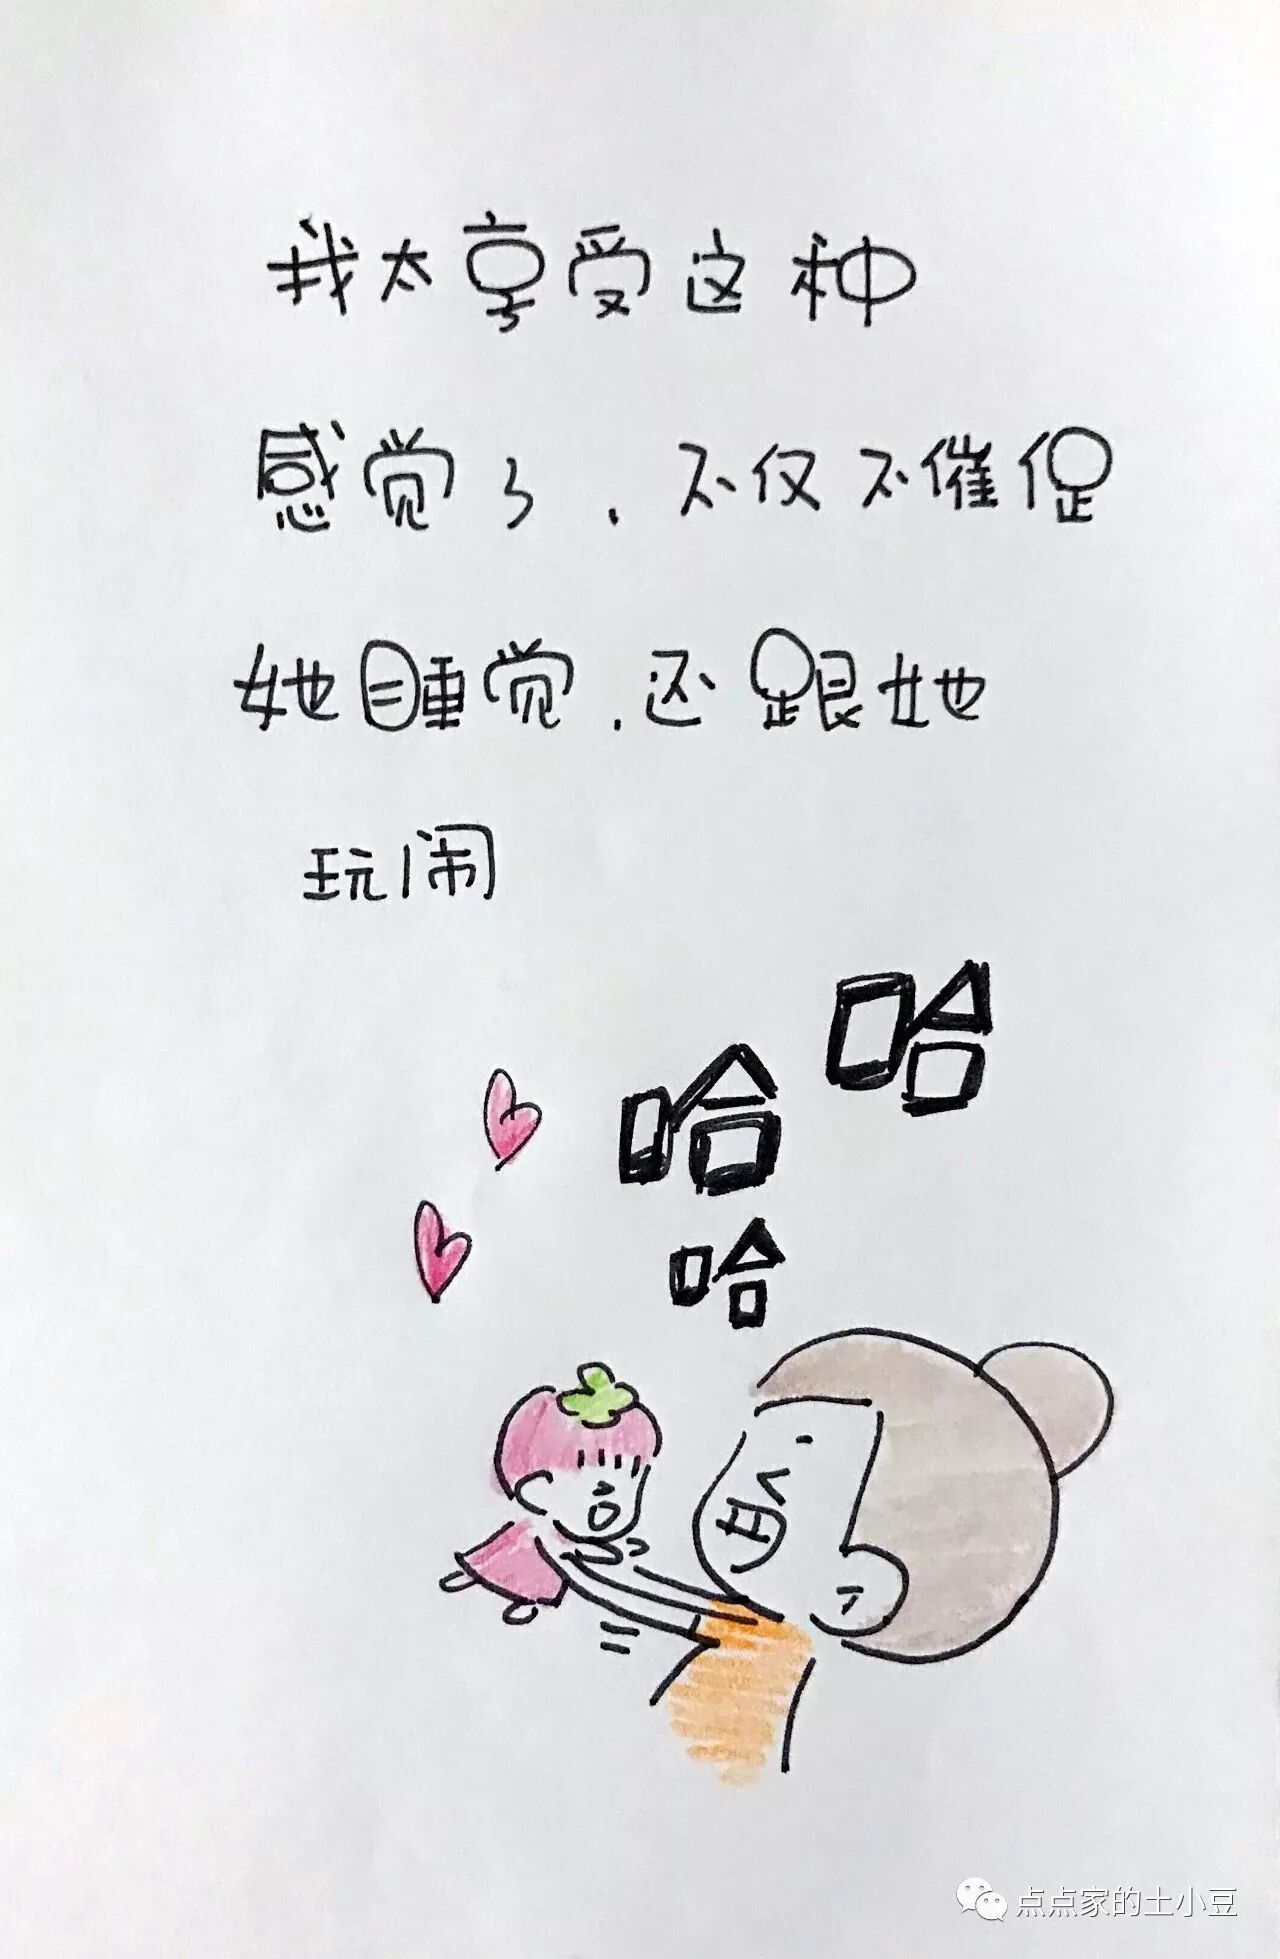 我太享受这种
感觉了,不仅不催促
她睡觉,还跟她
玩闹
哈
哈
哈
点点家的土小豆